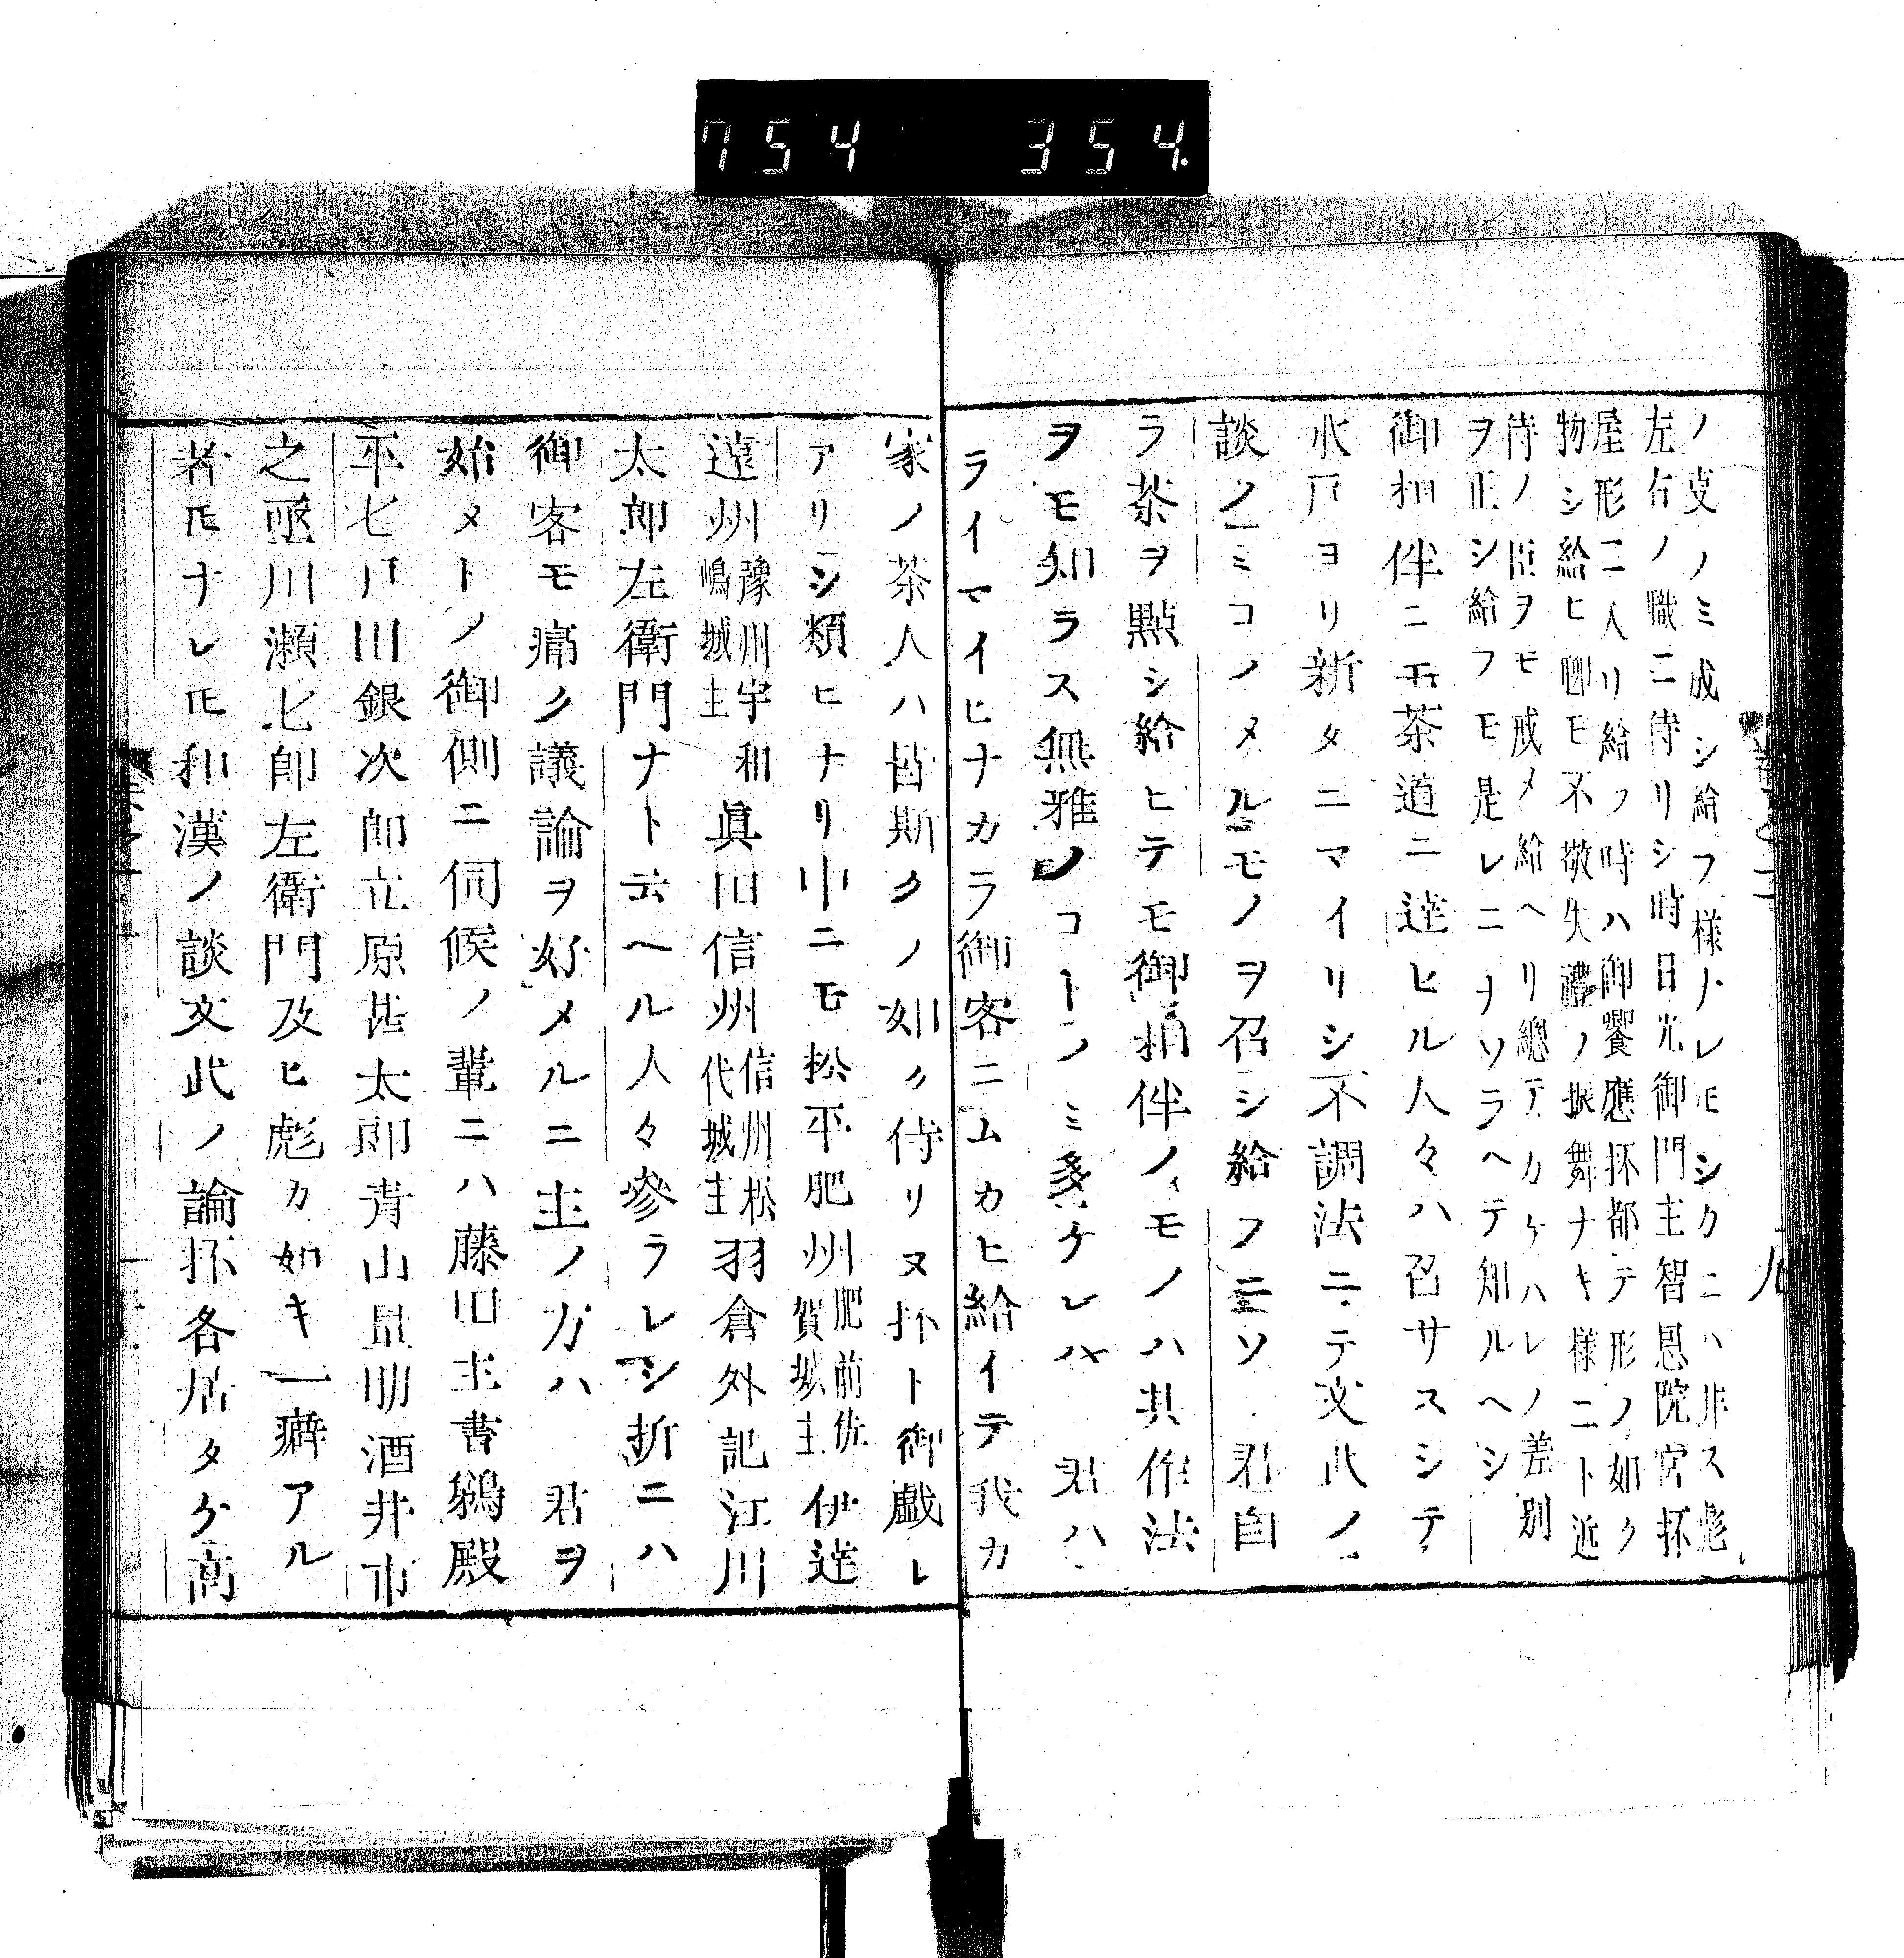 754 354.
ノ㕝ノミ成シ給フ様ナレ𪜈シカニハ非ス彪
左右ノ職ニ侍リシ時日光御門主智恩院宮抔
屋形ニ入リ給フ時ハ御饗應抔都テ形ノ如ク
物シ給ヒ聊モ不敬失禮ノ振舞ナキ様ニト近
侍ノ臣ヲモ戒メ給ヘリ總テカケハレノ差別
ヲ正シ給フモ是レニナソラヘテ知ルヘシ
御相伴ニモ茶道ニ達ヒル人々ハ召サスシテ
水戸ヨリ新タニマイリシ不調法ニテ文武ノ
談ノミコノメルモノヲ召シ給フニソ 君自
ラ茶ヲ點シ給ヒテモ御相伴ノモノハ其作法
ヲモ知ラス無雅ノコトノミ多ケレハ 君ハ
ライマイヒナカラ御客ニムカヒ給イテ我カ
九
家ノ茶人ハ皆斯クノ如ク侍リヌ抔ト御戯レ
アリシ類ヒナリ中ニモ松平肥州肥前佐賀城主伊達
遠州豫州宇和嶋城主眞田信州信州松代城主羽倉外記江川
太郎左衛門ナト云ヘル人々參ラレシ折ニハ
御客モ痛ク議論ヲ好メルニ主ノ方ハ 君ヲ
始メトノ御側ニ伺候ノ輩ニハ藤田主書鵜殿
平七戸川銀次郎立原甚太郎青山量明酒井市
之丞川瀬七郎左衛門及ヒ彪カ如キ一癖アル
者𪜈ナレ𪜈和漢ノ談文武ノ論抔各居タケ高